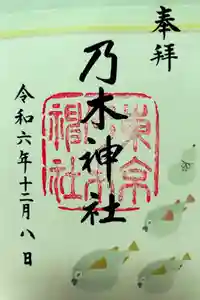 奉拝
乃木神社
令和六年十二月八日